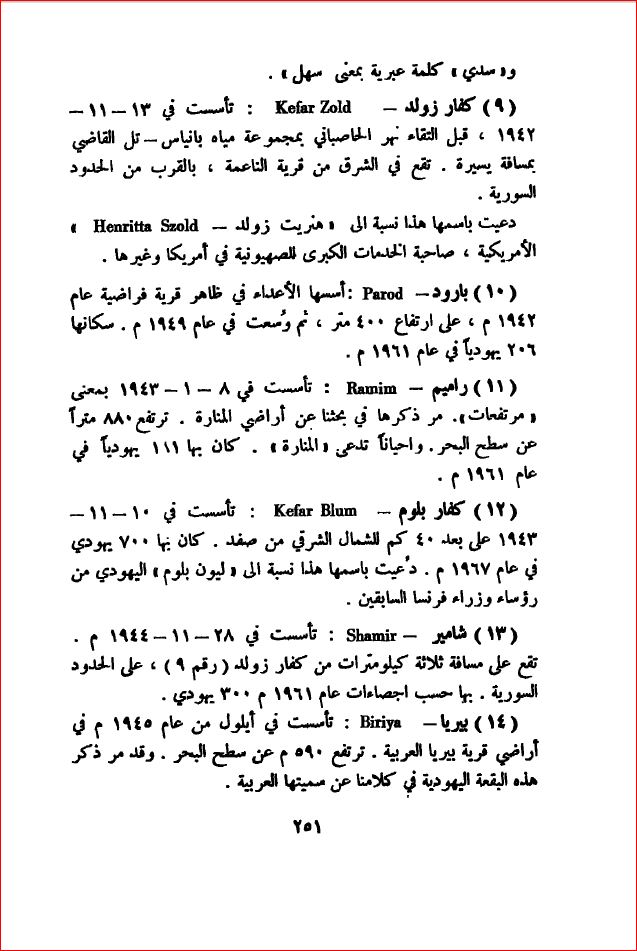 و «سدي» كلمة عبرية بمعنى سهل» .
(٩) كفار زولد – Kefar Zold : تأسست في ١٣ – ١١ –
١٩٤٢ ، قبل التقاء نهر الحاصباني بمجموعة مياه بانياس – تل القاضي
بمسافة يسيرة . تقع في الشرق من قرية الناعمة ، بالقرب من الحدود
السورية .
دعيت باسمها هذا نسبة الى «هنريت زولد – Henritta Szold »
الأمريكية ، صاحبة الخدمات الكبرى للصهيونية في أمريكا وغيرها .
(١٠) بارود – Parod : أسسها الأعداء في ظاهر قرية فراضية عام
١٩٤٢ م ، على ارتفاع ٤٠٠ متر ، ثم وُسعت في عام ١٩٤٩ م . سكانها
٢٠٦ يهودياً في عام ١٩٦١ م .
(١١) راميم – Ramim : تأسست في ٨ – ١ – ١٩٤٣ بمعنى
«مرتفعات». مر ذكرها في بحثنا عن أراضي المنارة . ترتفع ٨٨٠ متراً
عن سطح البحر . واحياناً تدعى «المنارة» . كان بها ١١١ يهودياً في
عام ١٩٦١ م .
(١٢) كفار بلوم – Kefar Blum : تأسست في ١٠ – ١١ –
١٩٤٣ على بعد ٤٠ كم للشمال الشرقي من صفد . كان بها ٧٠٠ يهودي
في عام ١٩٦٧ م . دُعيت باسمها هذا نسبة الى «ليون بلوم» اليهودي من
رؤساء وزراء فرنسا السابقين .
(١٣) شامير – Shamir : تأسست في ٢٨ – ١١ – ١٩٤٤ م .
تقع على مسافة ثلاثة كيلومترات من كفار زولد (رقم ٩) ، على الحدود
السورية . بها حسب احصاءات عام ١٩٦١ م ٣٠٠ يهودي .
(١٤) بيريا – Biriya : تأسست في أيلول من عام ١٩٤٥ م في
أراضي قرية بيريا العربية . ترتفع ٥٩٠ م عن سطح البحر . وقد مر ذكر
هذه البقعة اليهودية في كلامنا عن سميتها العربية .
٢٥١